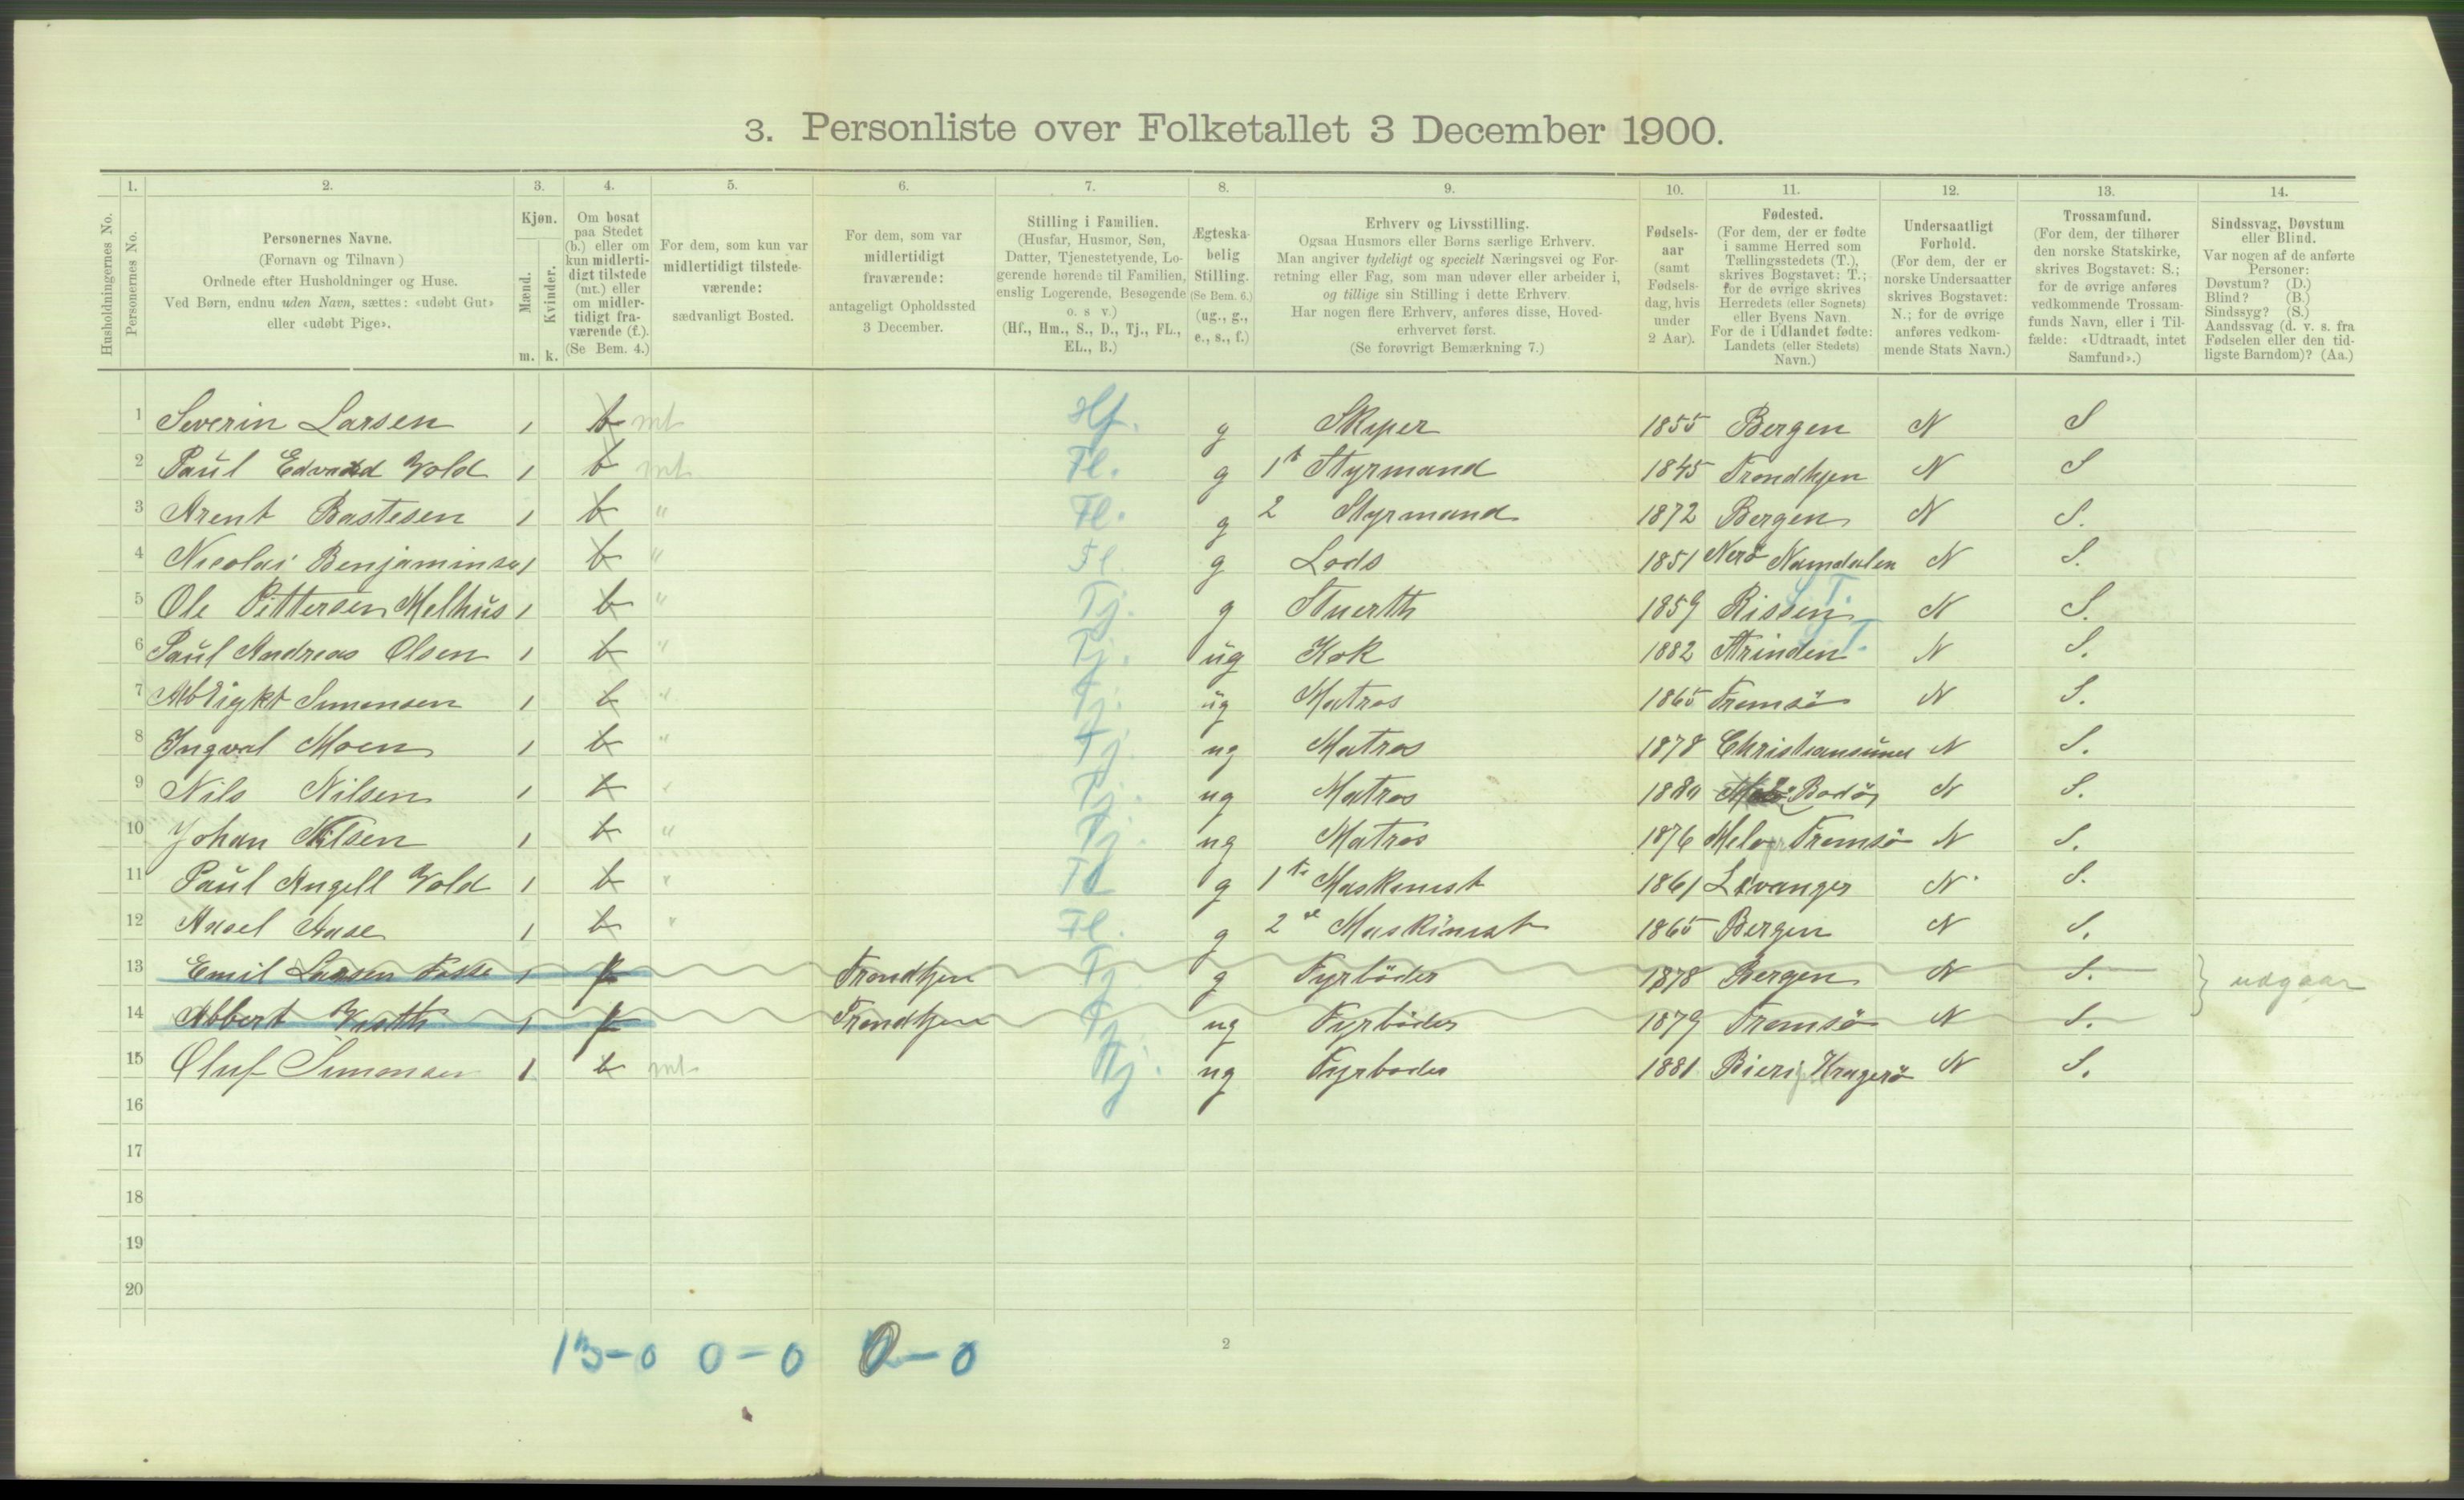 3. Personliste over Folketallet 3 December 1900.
Husholdningernes No.
1.
Personernes No.
2.
Personernes Navne.
(Fornavn og Tilnavn)
Ordnede efter Husholdninger og Huse.
Ved Børn, endnu uden Navn, sættes: «udøbt Gut»
eller «udøbt Pige».
3.
Kjøn.
Mænd.
Kvinder.
m. k.
4.
Om bosat
paa Stedet
(b.) eller om
kun midlerti-
digt tilstede
(mt.) eller
om midler-
tidigt fra-
værende (f.).
(Se Bem. 4.)
5.
For dem, som kun var
midlertidigt tilstede-
værende:
sædvanligt Bosted.
6.
For dem, som var
midlertidigt
fraværende:
antageligt Opholdssted
3 December.
7.
Stilling i Familien.
(Husfar, Husmor, Søn,
Datter, Tjenestetyende, Lo-
gerende hørende til Familien,
enslig Logerende, Besøgende
o. s v.)
(Hf., Hm., S., D., Tj., FL.,
EL., B.)
8.
Ægteska-
belig
Stilling.
(Se Bem. 6.)
(ug., g.,
e., s., f.)
9.
Erhverv og Livsstilling.
Ogsaa Husmors eller Børns særlige Erhverv.
Man angiver tydeligt og specielt Næringsvei og For-
retning eller Fag, som man udøver eller arbeider i,
og tillige sin Stilling i dette Erhverv.
Har nogen flere Erhverv, anføres disse, Hoved-
erhvervet først.
(Se forøvrigt Bemærkning 7.)
10.
Fødsels-
aar
(samt
Fødsels-
dag, hvis
under
2 Aar).
11.
Fødested.
(For dem, der er fødte
i samme Herred som
Tællingsstedets (T.),
skrives Bogstavet: T.;
for de øvrige skrives
Herredets (eller Sognets)
eller Byens Navn.
For de i Udlandet fødte:
Landets (eller Stedets)
Navn.)
12.
Undersaatligt
Forhold.
(For dem, der er
norske Undersaatter
skrives Bogstavet:
N.; for de øvrige
anføres vedkom-
mende Stats Navn.)
13.
Trossamfund.
(For dem, der tilhører
den norske Statskirke,
skrives Bogstavet: S.;
for de øvrige anføres
vedkommende Trossam-
funds Navn, eller i Til-
fælde: «Udtraadt, intet
Samfund».)
14.
Sindssvag, Døvstum
eller Blind.
Var nogen af de anførte
Personer:
Døvstum? (D.)
Blind? (B.)
Sindssyg? (S.)
Aandssvag (d. v. s. fra
Fødselen eller den tid-
ligste Barndom)? (Aa.)
1 Severin Larsen 1 b mt Hf. g Skiper 1855 Bergen N S
2 Paul Edvard Vold 1 b mt Fl. g 1t Styrmand 1845 Trondhjen N S
3 Arent Bastesen 1 b " Fl. g 2 Styrmand 1872 Bergen N S.
4 Nicolai Benjaminsen 1 b " Fl g Lods 1851 Nerö Namdalen N S.
5 Ole Pittersen Melhus 1 b " Tj. g Stuerth 1859 Rissen T. N S.
6 Paul Andreas Olsen 1 b " Tj. ug Kok 1882 Strinden T. N S.
7 Simonsen 1 b " Tj. ug Matros 1865 Tromsö N S.
8 Ingval Moen 1 b " Tj ug Matros 1878 Christiansund N S.
9 Nils Nilsen 1 b " Tj. ug Matros 1880 Bodö N S.
10 Johan Nilsen 1 b " Tj. ug Matros 1876 Melø Tromsö N S.
11 Paul Angell Vold 1 b " Fl g 1te Maskinist 1861 Levanger N. S.
12 Axsel Aase 1 b " Fl. g 2de Maskinist 1865 Bergen N S.
13 Emil Larsen Fosse 1 f Trondhjen Tj g Fyrböder 1878 Bergen N S. } udgaar
14 Albert 1 f Trondhjen Tj ug Fyrböder 1879 Tromsö N S.
15 Oluf Simonsen 1 b mt Tj. ug Fyrböder 1881 Kragerö N S.
16
17
18
19
20
13-0 0-0 0-0
2